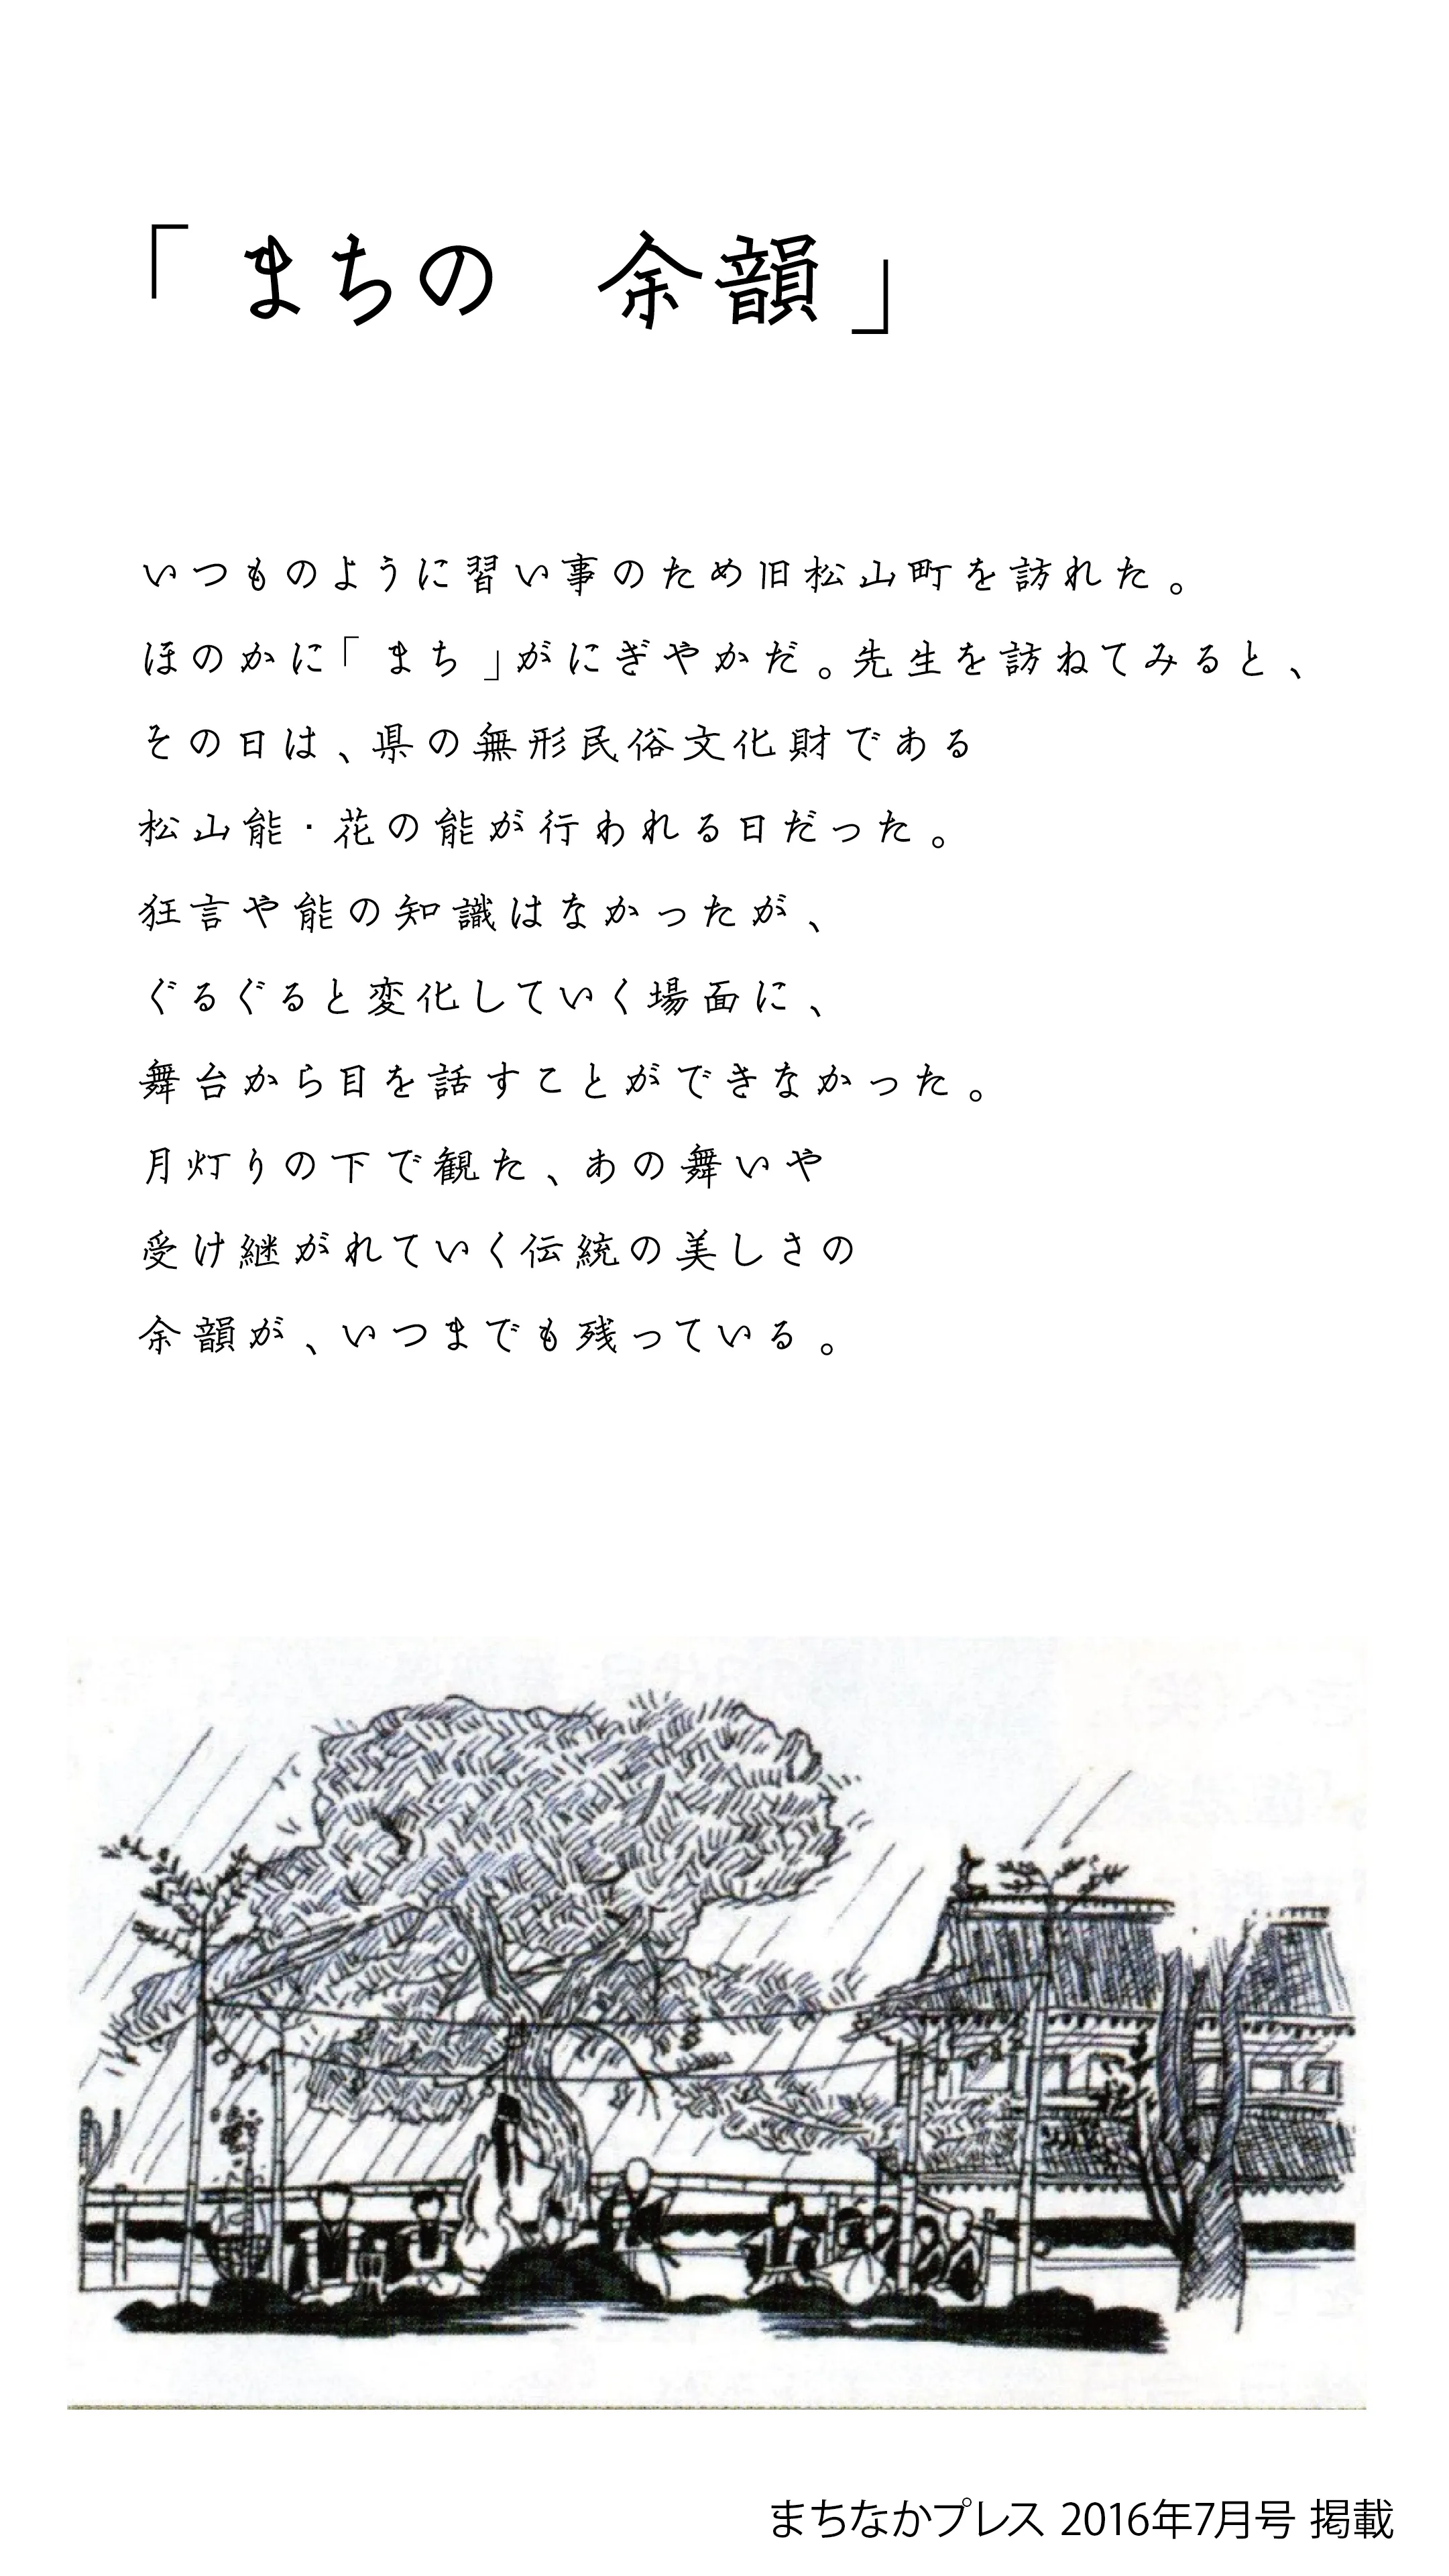 「まちの　余韻」
いつものように習い事のため旧松山町を訪れた。
ほのかに「まち」がにぎやかだ。先生を訪ねてみると、
その日は、県の無形民俗文化財である
松山能・花の能が行われる日だった。
狂言や能の知識はなかったが、
ぐるぐると変化していく場面に、
舞台から目を話すことができなかった。
月灯りの下で観た、あの舞いや
受け継がれていく伝統の美しさの
余韻が、いつまでも残っている。
まちなかプレス 2016年7月号 掲載